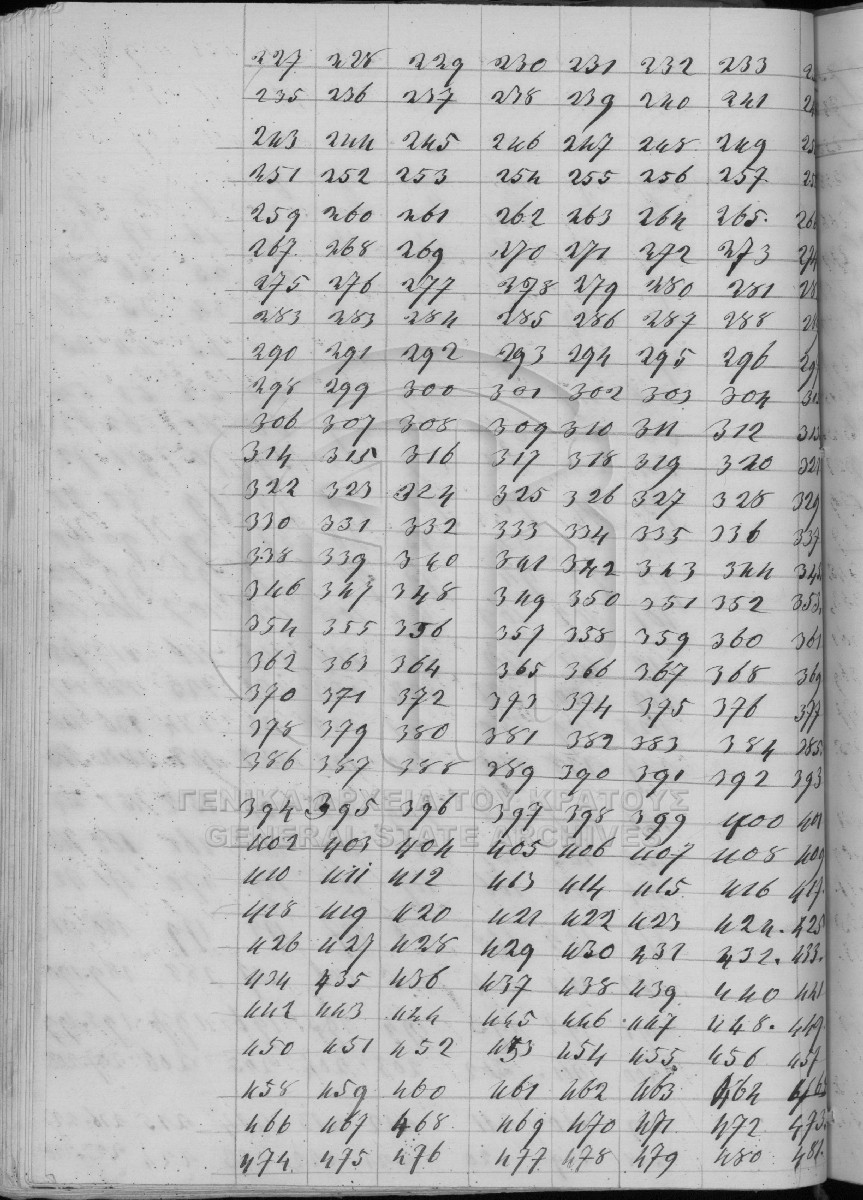 227 228 229 230 231 232 233
235 236 237 238 239 240 241
243 244 245 246 247 248 249
251 252 253 254 255 256 257
259 260 261 262 263 264 265.
267 268 269 270 271 272 273
275 276 277 278 279 280 281
283 283 284 285 286 287 288
290 291 292 293 294 295 296
298 299 300 301 302 303 304
306 307 308 309 310 311 312 313
314 315 316 317 318 319 320 321
322 323 324 325 326 327 328 329
330 331 332 333 334 335 336 337
338 339 340 341 342 343 344 345
346 347 348 349 350 351 352 353
354 355 356 357 358 359 360 361
362 363 364 365 366 367 368 369
370 371 372 373 374 375 376 377
378 379 380 381 382 383 384 385
386 387 388 389 390 391 392 393
ΓΕΝΙΚΑ ΑΡΧΕΙΑ ΤΟΥ ΚΡΑΤΟΥΣ
394 395 396 397 398 399 400 401
GENERAL STATE ARCHIVES
402 403 404 405 406 407 408 409
410 411 412 413 414 415 416 417
418 419 420 421 422 423 424. 425
426 427 428 429 430 431 432. 433.
434 435 436 437 438 439 440 441
442 443 444 445 446 447 448. 449
450 451 452 453 454 455 456 457
458 459 460 461 462 463 464 465
466 467 468 469 470 471 472 473
474 475 476 477 478 479 480 481